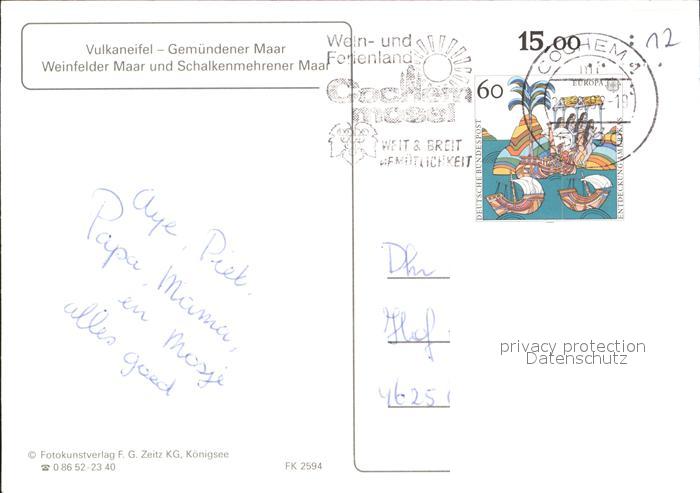 Vulkaneifel – Gemündener Maar
Weinfelder Maar und Schalkenmehrener Maar
Wein- und
Ferienland
Cochem
mosel
WEIT & BREIT
GEMÜTLICHKEIT
15,00
12
COCHEM
60
EUROPA
DEUTSCHE BUNDESPOST
ENTDECKUNG AMERIKAS
Aye, Piet.
Papa, Mama,
en Mosje
alles goed
Dhr
Hof
4625
privacy protection
Datenschutz
© Fotokunstverlag F. G. Zeitz KG, Königsee
☎ 0 86 52-23 40
FK 2594